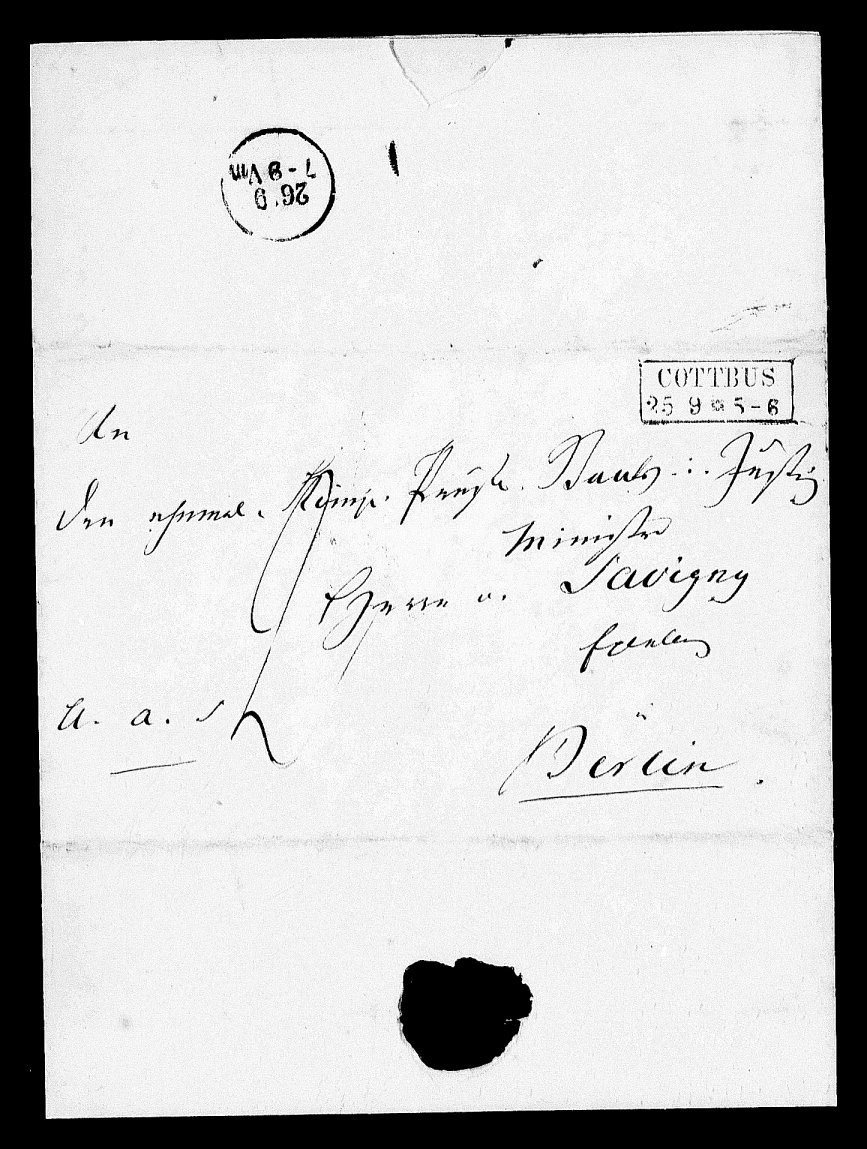 7-8 Vm
26.9
COTTBUS
25 9 * 5-6
An
den ehemal. Königl. Preuß. Staats u. Justiz
Minister
Herrn v. Savigny
Berlin.